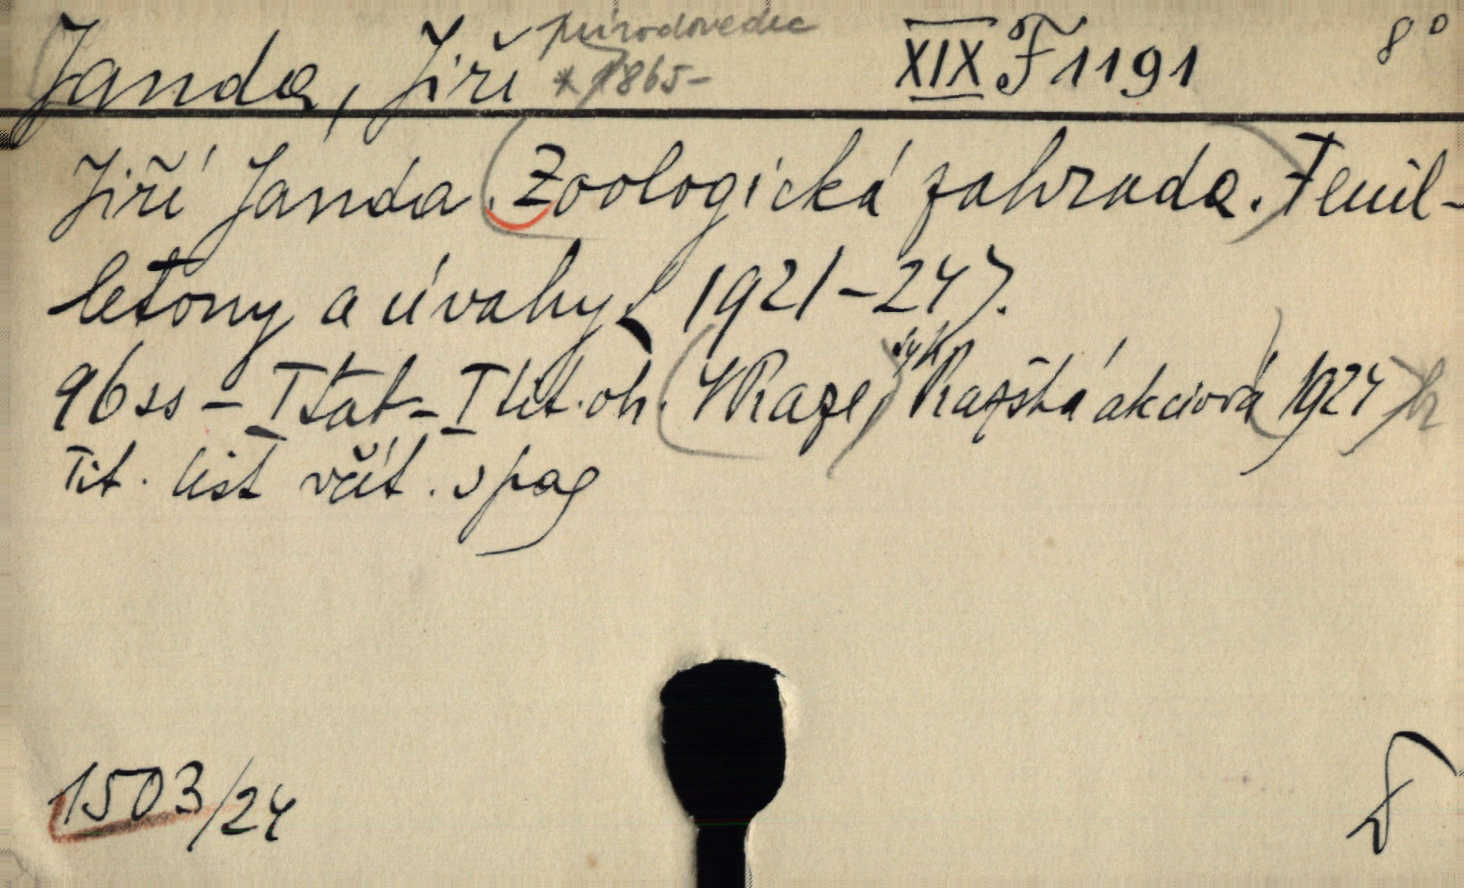 Janda, Jiří přírodovědec *1865- XIX F 1191 8°
Jiří Janda. Zoologická zahrada. Feuil-
letony a úvahy. (1921-24).
96 ss - I tab - I tit. ob. V Praze, Pražská akciová 1924
Tit. list včít. v pag
1503/24